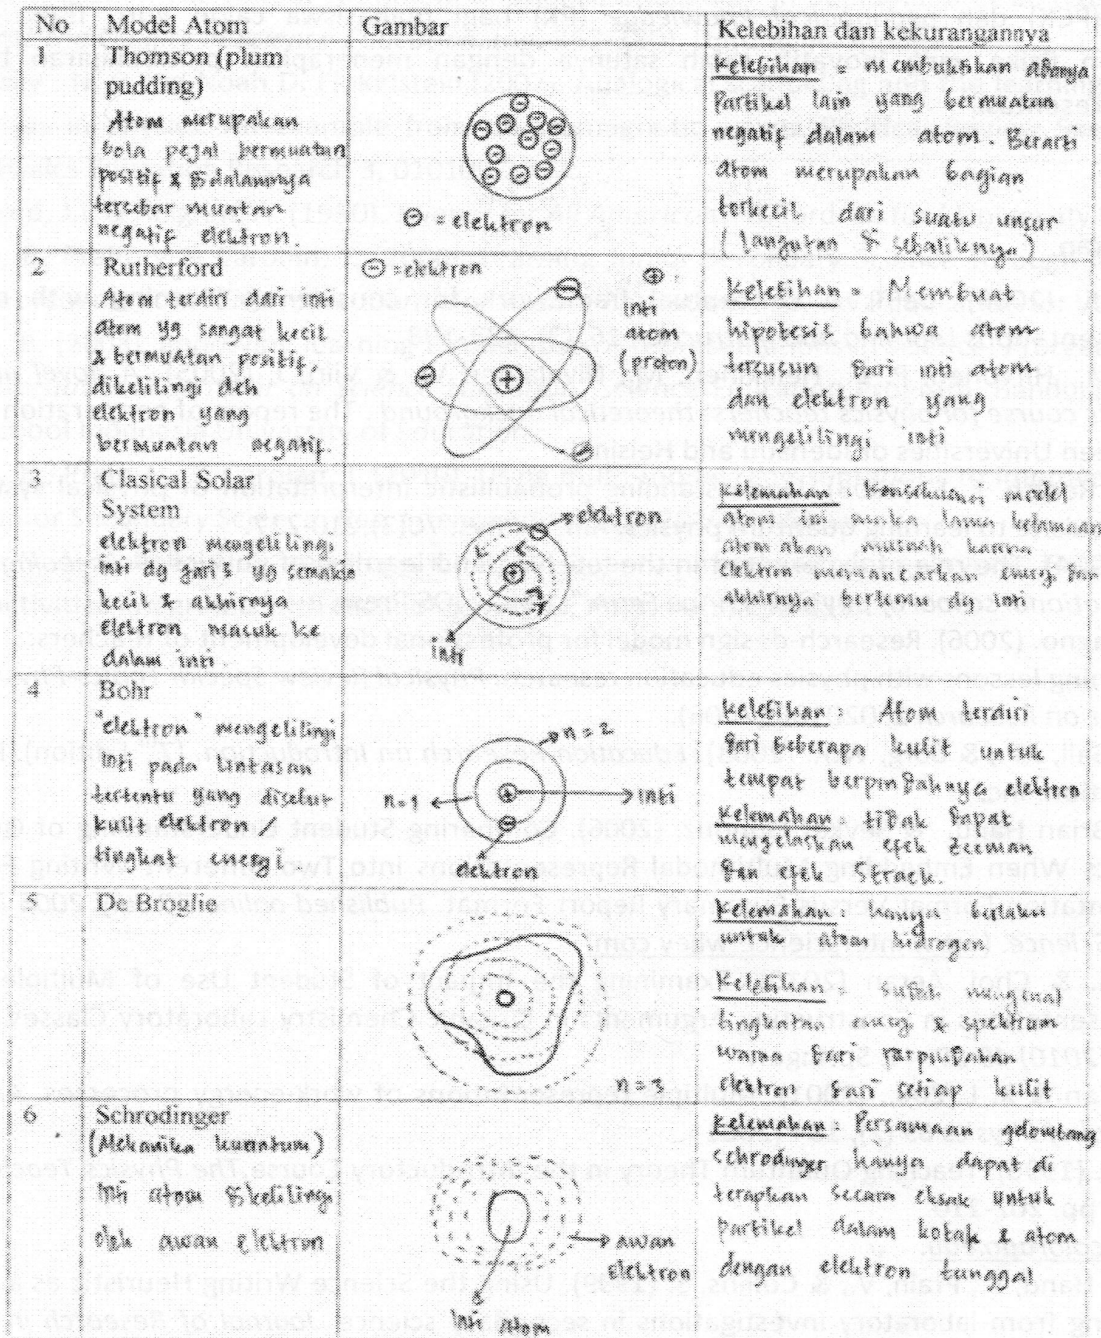 No Model Atom Gambar Kelebihan dan kekurangannya
1 Thomson (plum
pudding)
Atom merupakan
bola pejal bermuatan
positif & didalamnya
tersebar muatan
negatif elektron.
⊖ = elektron
Kelebihan = membuktikan adanya
Partikel lain yang bermuatan
negatif dalam atom. Berarti
atom merupakan bagian
terkecil dari suatu unsur
(langutan di sebaliknya)
2 Rutherford
Atom terdiri dari inti
atom yg sangat kecil
& bermuatan positif,
dikelilingi oleh
elektron yang
bermuatan negatif.
⊖ = elektron
⊕
inti
atom
(proton)
Kelebihan = Membuat
hipotesis bahwa atom
tersusun dari inti atom
dan elektron yang
mengelilingi inti
3 Clasical Solar
System
elektron mengelilingi
inti dg jari2 yg semakin
kecil & akhirnya
elektron masuk ke
dalam inti.
elektron
inti
Kelemahan: Konsekuensi model
atom ini maka lama kelamaan
atom akan musnah karena
elektron memancarkan energi dan
akhirnya bertemu dg inti
4 Bohr
"elektron" mengelilingi
inti pada lintasan
tertentu yang disebut
kulit elektron /
tingkat energi
n = 2
n=1
inti
elektron
Kelebihan: Atom terdiri
dari beberapa kulit untuk
tempat berpindahnya elektron
Kelemahan: tidak dapat
mengelaskan efek zeeman
dan efek Strack.
5 De Broglie
n = 3
Kelemahan: hanya berlaku
untuk atom hidrogen
Kelebihan: sudah mengenal
tingkatan energi & spektrum
warna dari perpindahan
elektron dari setiap kulit
6 Schrodinger
(Mekanika kuantum)
Inti atom dikelilingi
oleh awan elektron
awan
elektron
Inti Atom
Kelemahan: Persamaan gelombang
schrodinger hanya dapat di
terapkan secara eksak untuk
partikel dalam kotak & atom
dengan elektron tunggal